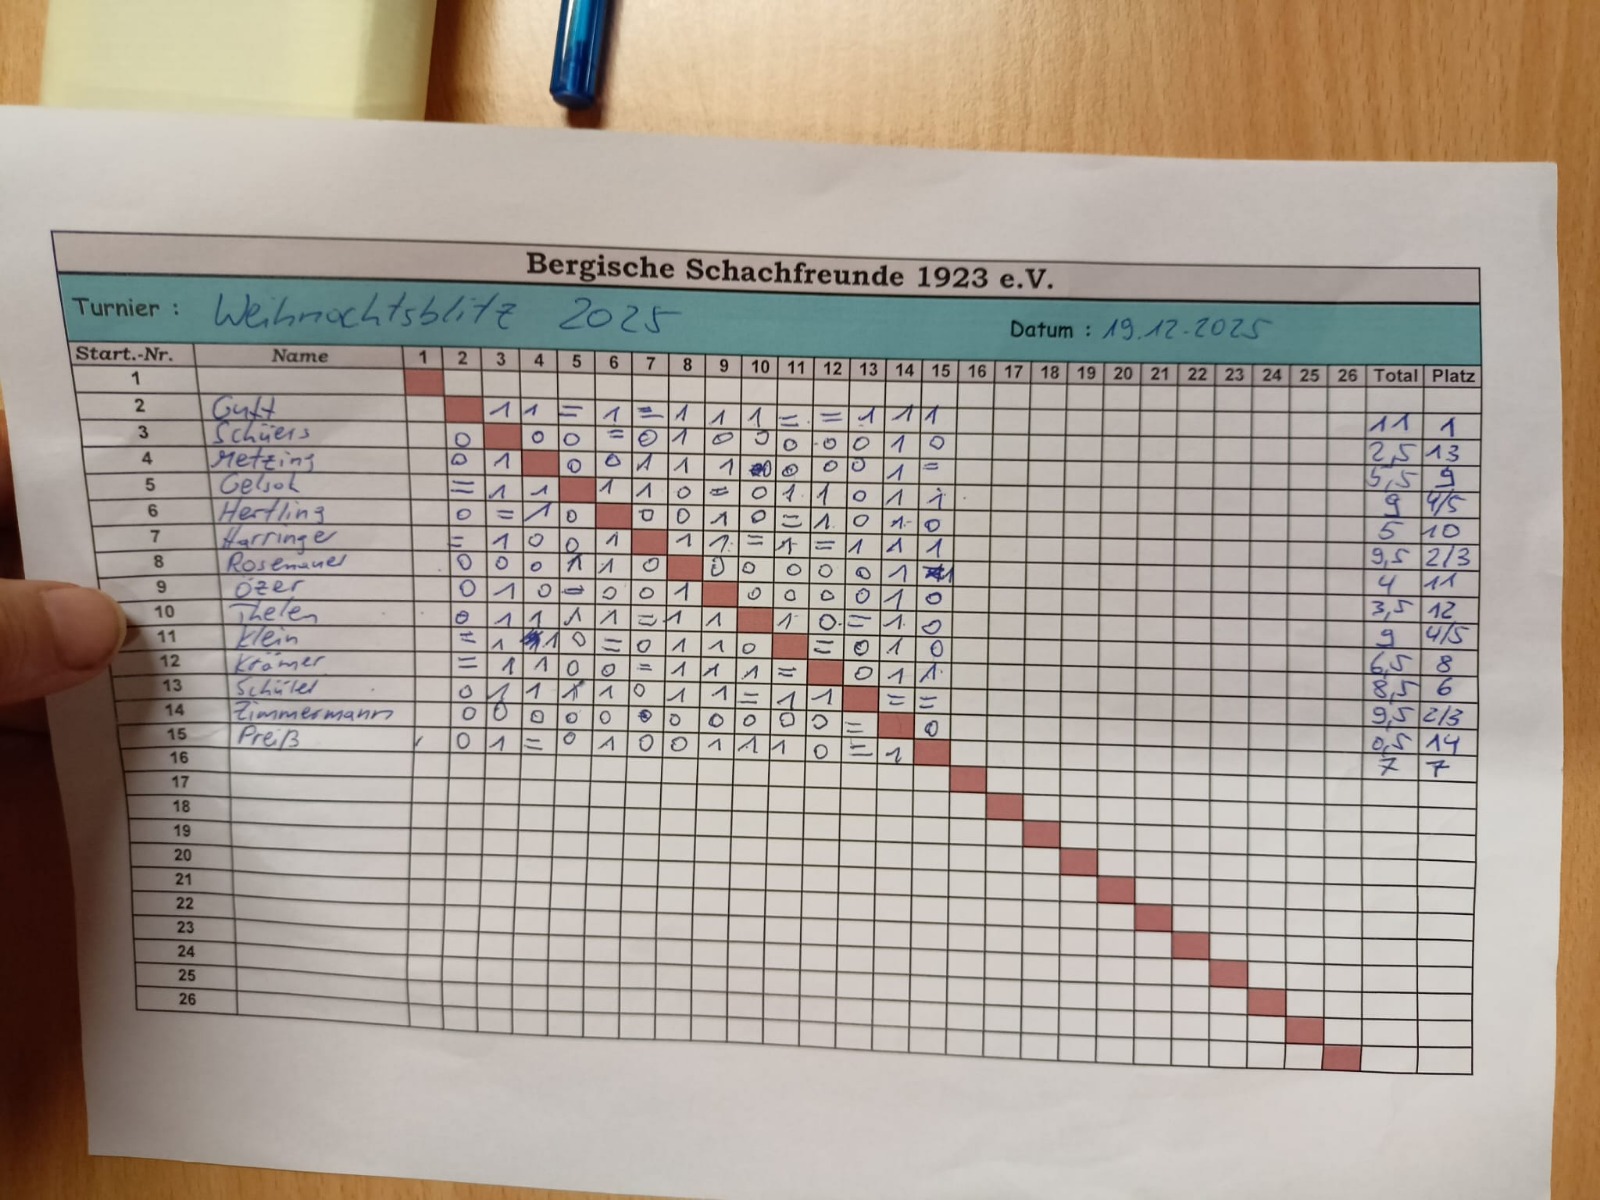 Bergische Schachfreunde 1923 e.V.
Turnier : Weihnachtsblitz 2025 Datum : 19.12.2025
Start.-Nr. Name 1 2 3 4 5 6 7 8 9 10 11 12 13 14 15 16 17 18 19 20 21 22 23 24 25 26 Total Platz
1
2 Gutt 1 1 = 1 = 1 1 1 = = 1 1 1 11 1
3 Schüers 0 0 0 = 0 1 0 0 0 0 0 1 0 2,5 13
4 Metzing 0 1 0 0 1 1 1 0 0 0 0 1 = 5,5 9
5 = 1 1 1 1 0 = 0 1 1 0 1 1 9 4/5
6 Hertling 0 = 1 0 0 0 1 0 = 1 0 1 0 5 10
7 Harringer = 1 0 0 1 1 1 = 1 = 1 1 1 9,5 2/3
8 Rosenauer 0 0 0 1 1 0 0 0 0 0 0 1 1 4 11
9 Özer 0 1 0 = 0 0 1 0 0 0 0 1 0 3,5 12
10 Thelen 0 1 1 1 1 = 1 1 1 0 = 1 0 9 4/5
11 Klein = 1 1 0 = 0 1 1 0 = 0 1 0 6,5 8
12 Krämer = 1 1 0 0 = 1 1 1 = 0 1 1 8,5 6
13 Schüler 0 1 1 1 1 0 1 1 = 1 1 = = 9,5 2/3
14 Zimmermann 0 0 0 0 0 0 0 0 0 0 0 = 0 0,5 14
15 Preiß 0 1 = 0 1 0 0 1 1 1 0 = 1 7 7
16
17
18
19
20
21
22
23
24
25
26